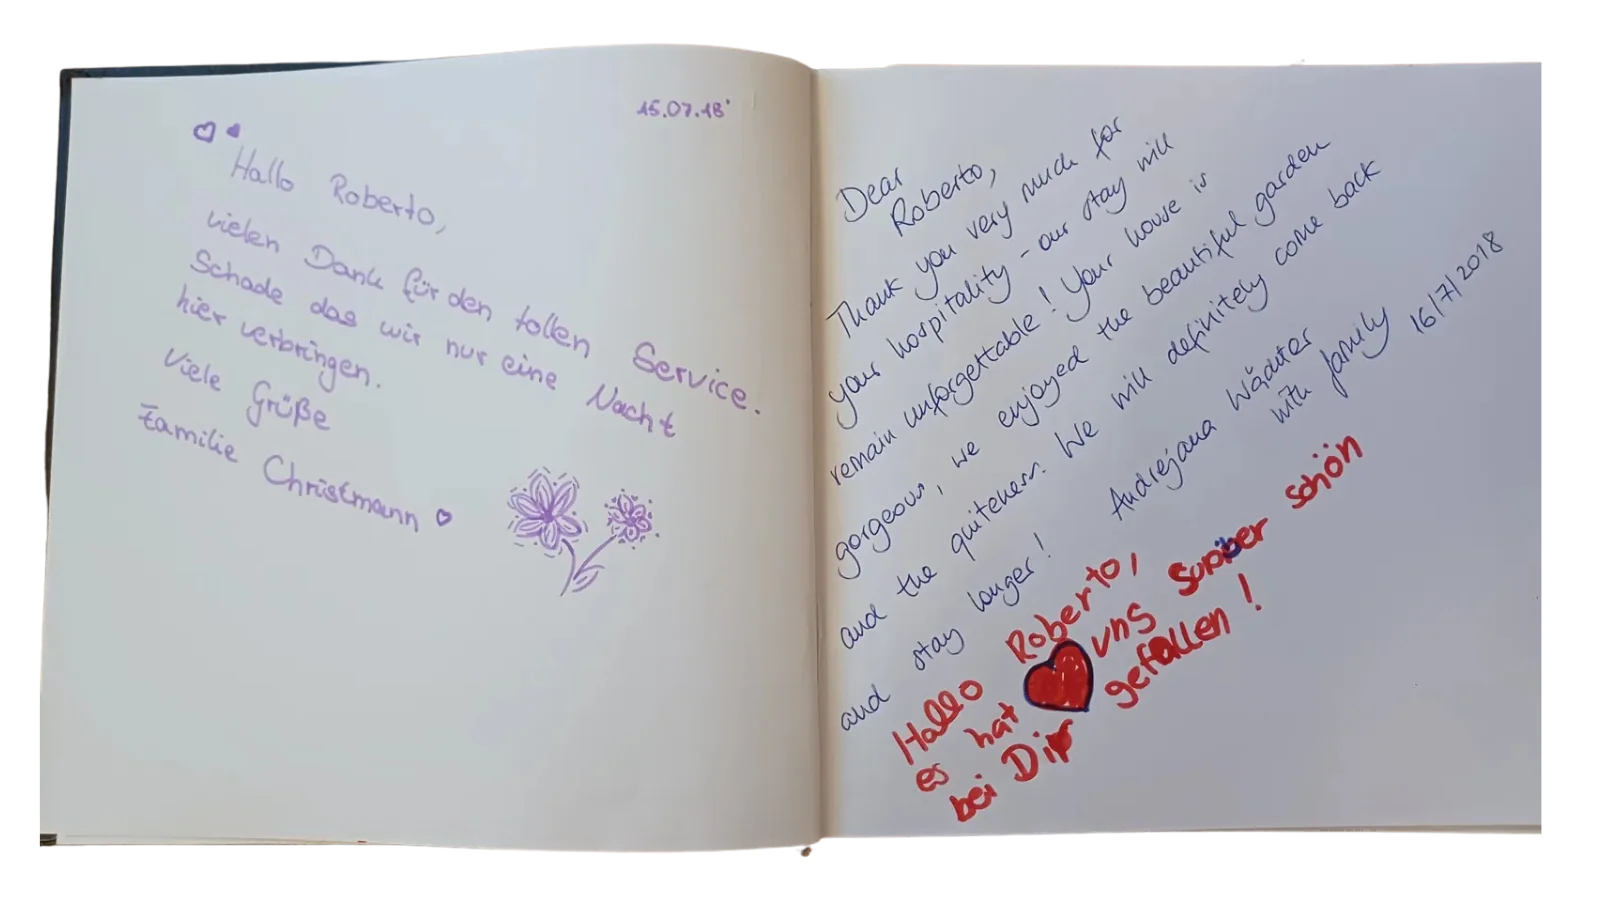 15.07.18
Hallo Roberto,
vielen Dank für den tollen Service.
Schade das wir nur eine Nacht
hier verbringen.
Viele Grüße
Familie Christmann
Dear
Roberto,
Thank you very much for
your hospitality - our stay will
remain unforgettable! Your house is
gorgeous, we enjoyed the beautiful garden
and the quiteness. We will definitely come back
and stay longer! Andrejana Wächter
with family
16/7/2018
Hallo Roberto,
es hat uns super schön
bei Dir gefallen!